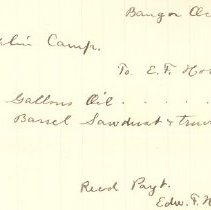 Bangor
Camp.
To E. F.
Gallons Oil
Barrel Sawdust &
Recd Payt.
Edw. F. H